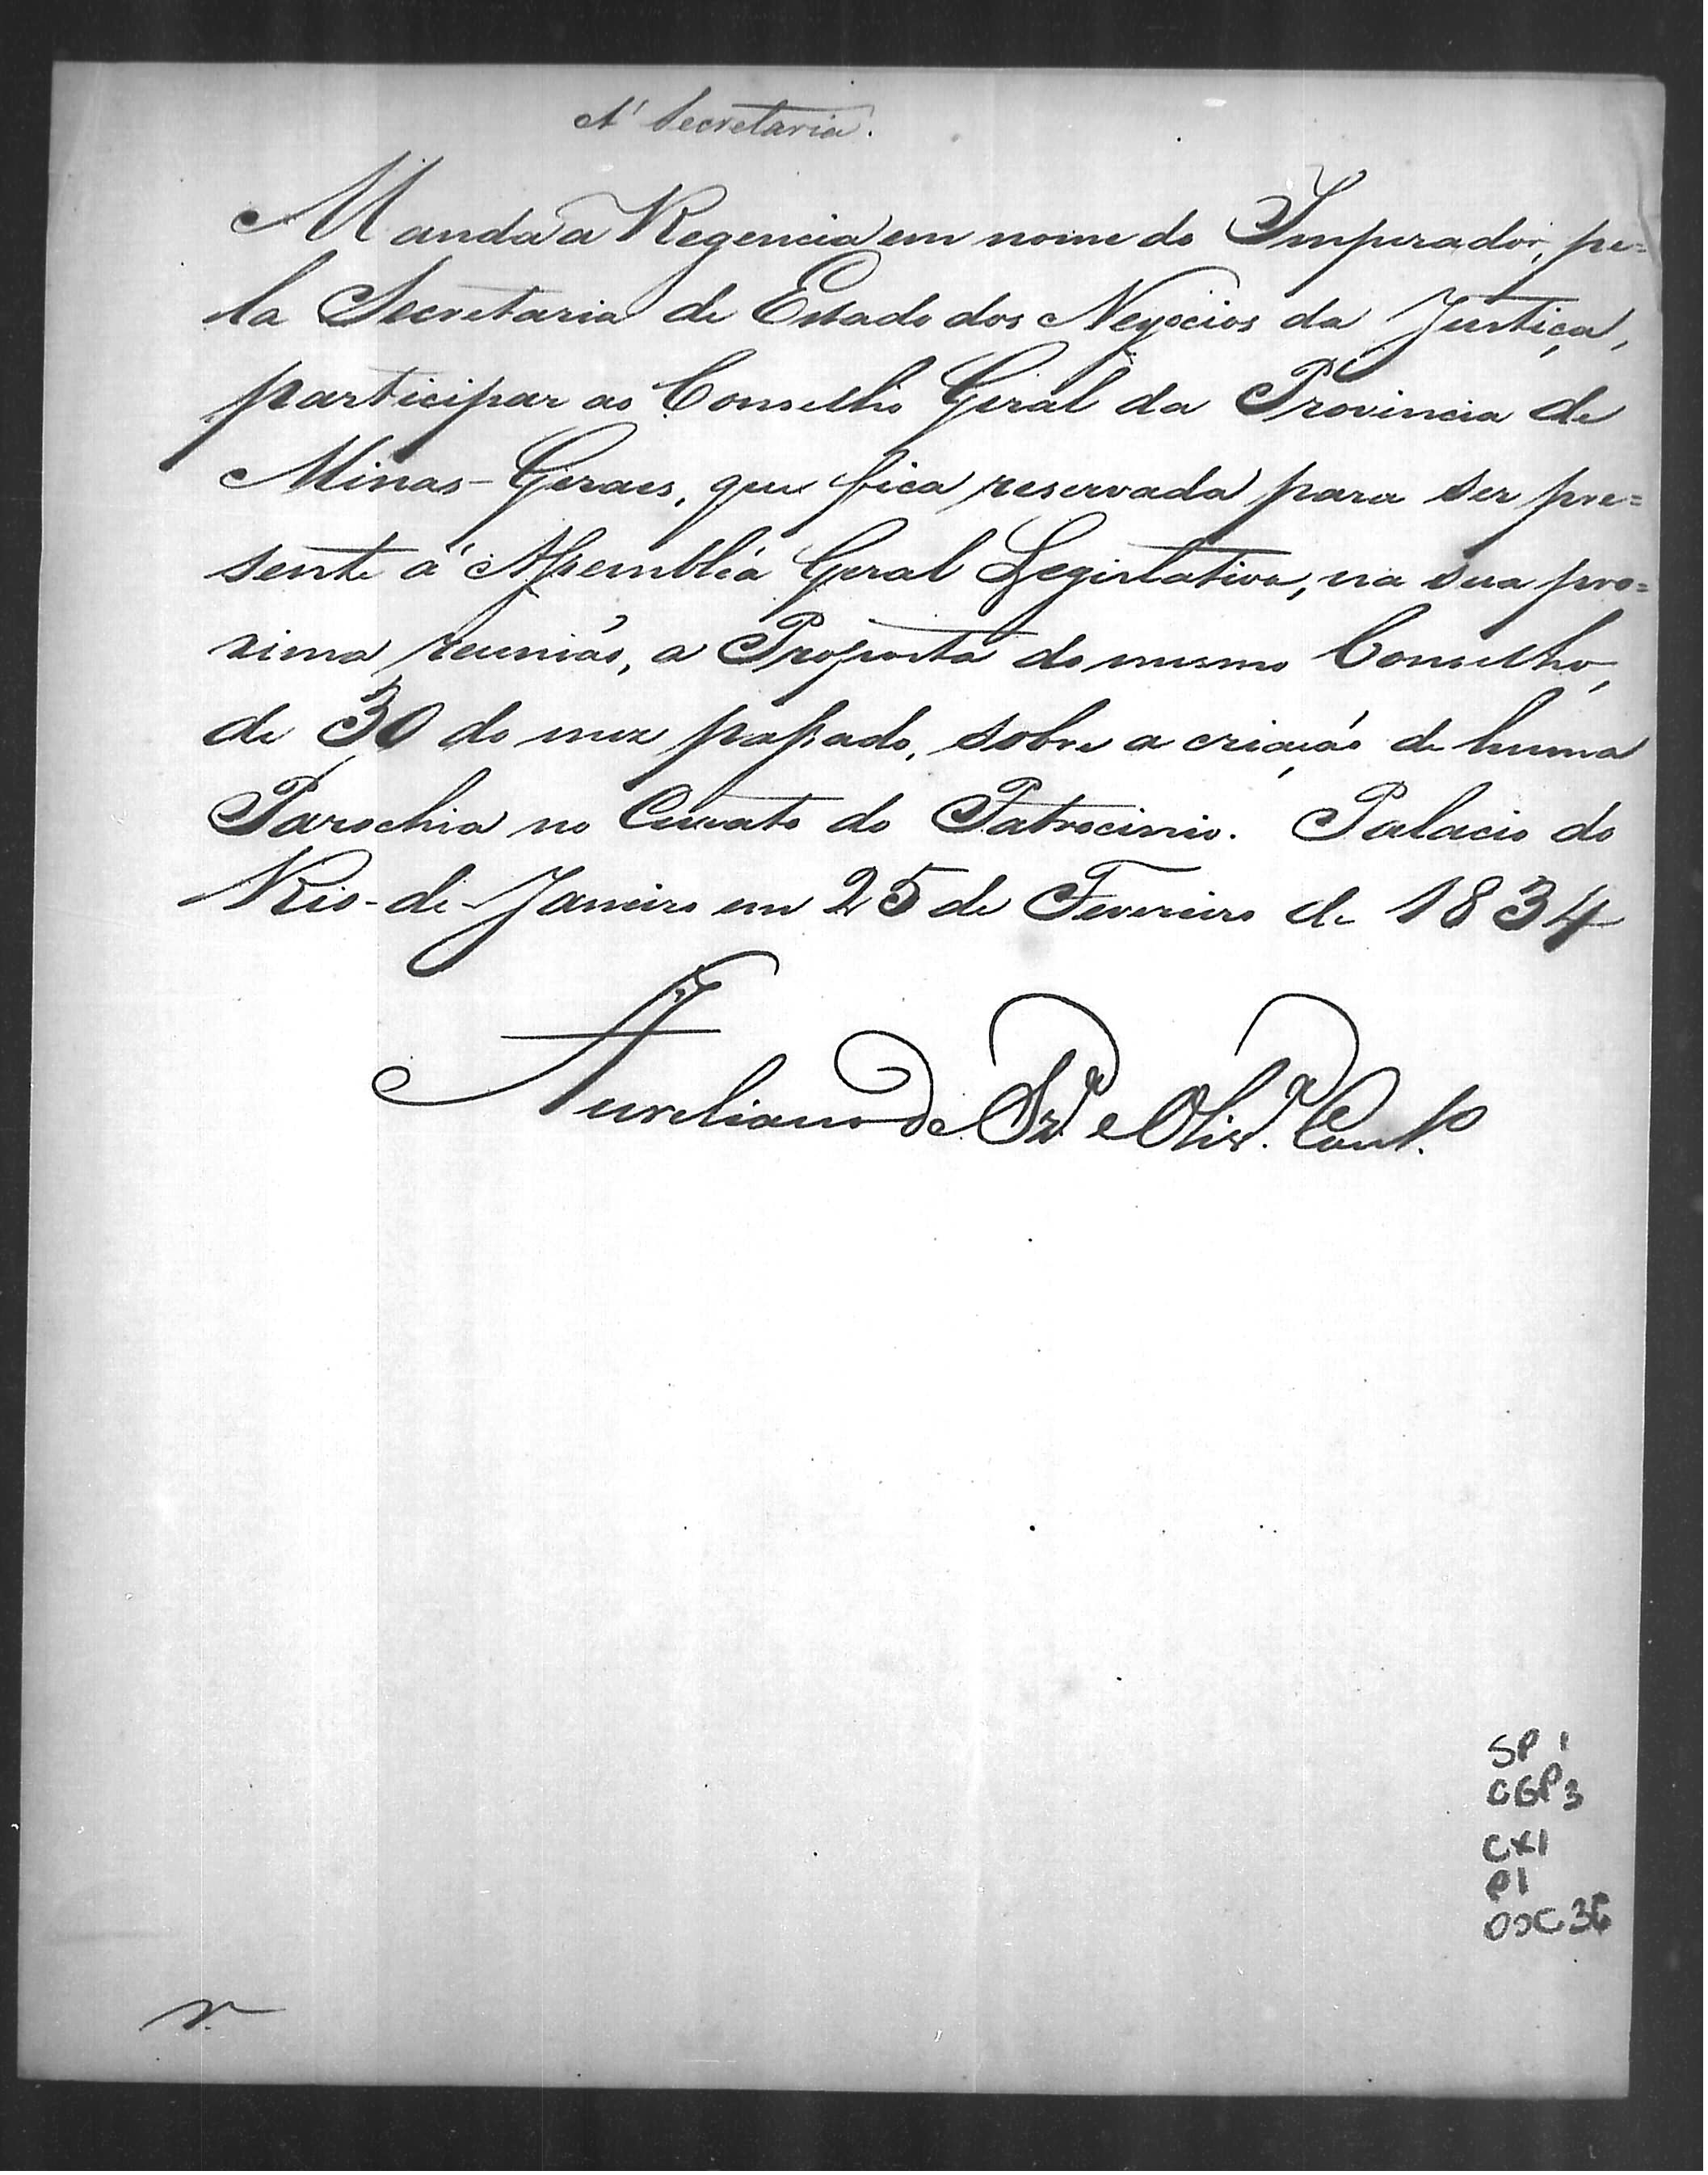 A' Secretaria.
Manda a Regencia em nome do Imperador, pe=
la Secretaria de Estado dos Negocios da Justiça,
participar ao Conselho Geral da Provincia de
Minas-Geraes, que fica reservada para ser pre=
sente á Assembléa Geral Legislativa, na sua pro=
xima reunião, a Proposta do mesmo Conselho,
de 30 do mez passado, sobre a criação de huma
Parochia no Curato do Patrocinio. Palacio do
Rio-de-Janeiro em 25 de Fevereiro de 1834
Aureliano de Sza. e Olivra. Couto.
SP 1
CGP 3
CX1
P1
DOC 36